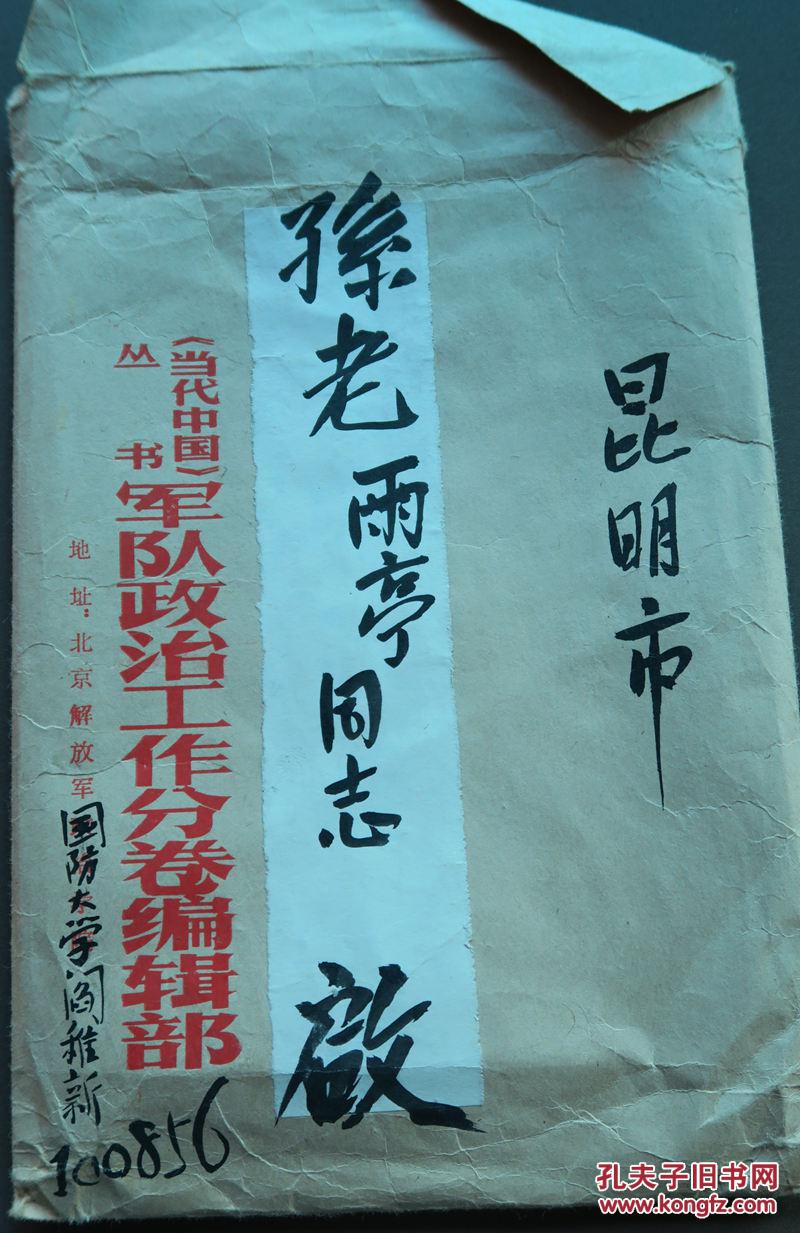 昆明市
孫老雨亭同志 啟
《当代中国》
丛书
军队政治工作分卷编辑部
地址:北京解放军
国防大学阎稚新
100856
孔夫子旧书网
www.kongfz.com